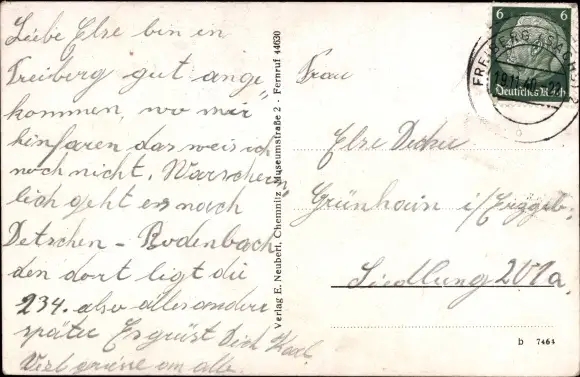 Liebe Else bin in
Freiberg gut ange
kommen, wo mir
hinfaren das weis ich
noch nicht. Warschein
lich geht es nach
Detschen - Bodenbach
den dort ligt die
234. also alles andere
später Es grüst Dich Karl
Viel grüse an alle.
Verlag E. Neubert, Chemnitz, Museumstraße 2 - Fernruf 44630
6 6
Deutsches Reich
FREIBERG (SACHS)
Frau
Else Decker
Grünhain i/Erzgeb.
Siedlung 201a.
b 7464